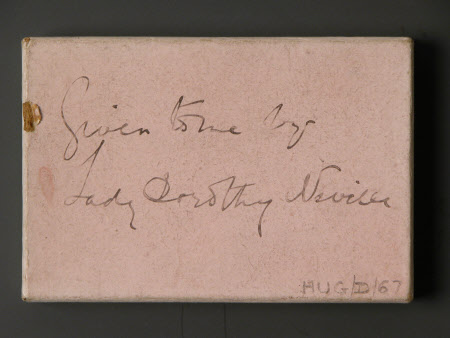 Given to me by
Lady Dorothy Nevill
HUG/D/67